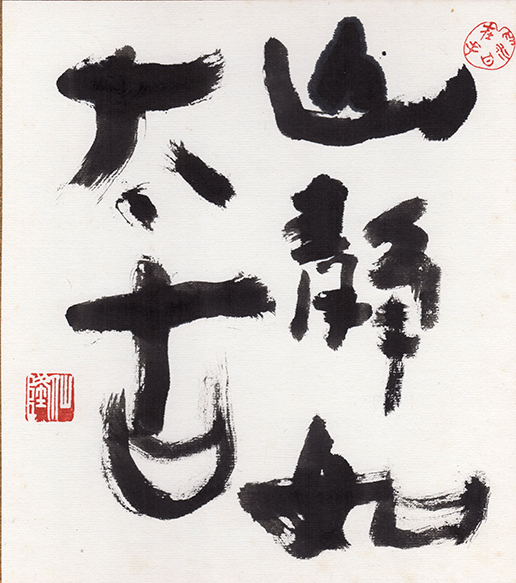 山静如
太古